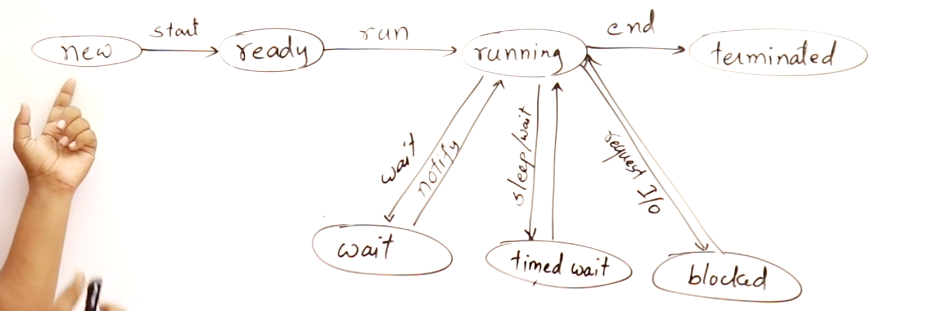 start
run
end
new
ready
running
terminated
wait
notify
sleep/wait
request I/O
wait
timed wait
blocked